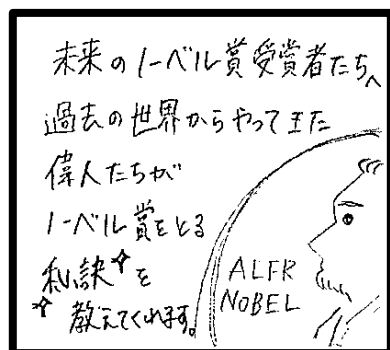 未来のノーベル賞受賞者たちへ
過去の世界からやってきた
偉人たちが
ノーベル賞をとる
秘訣を
教えてくれます。
ALFR
NOBEL